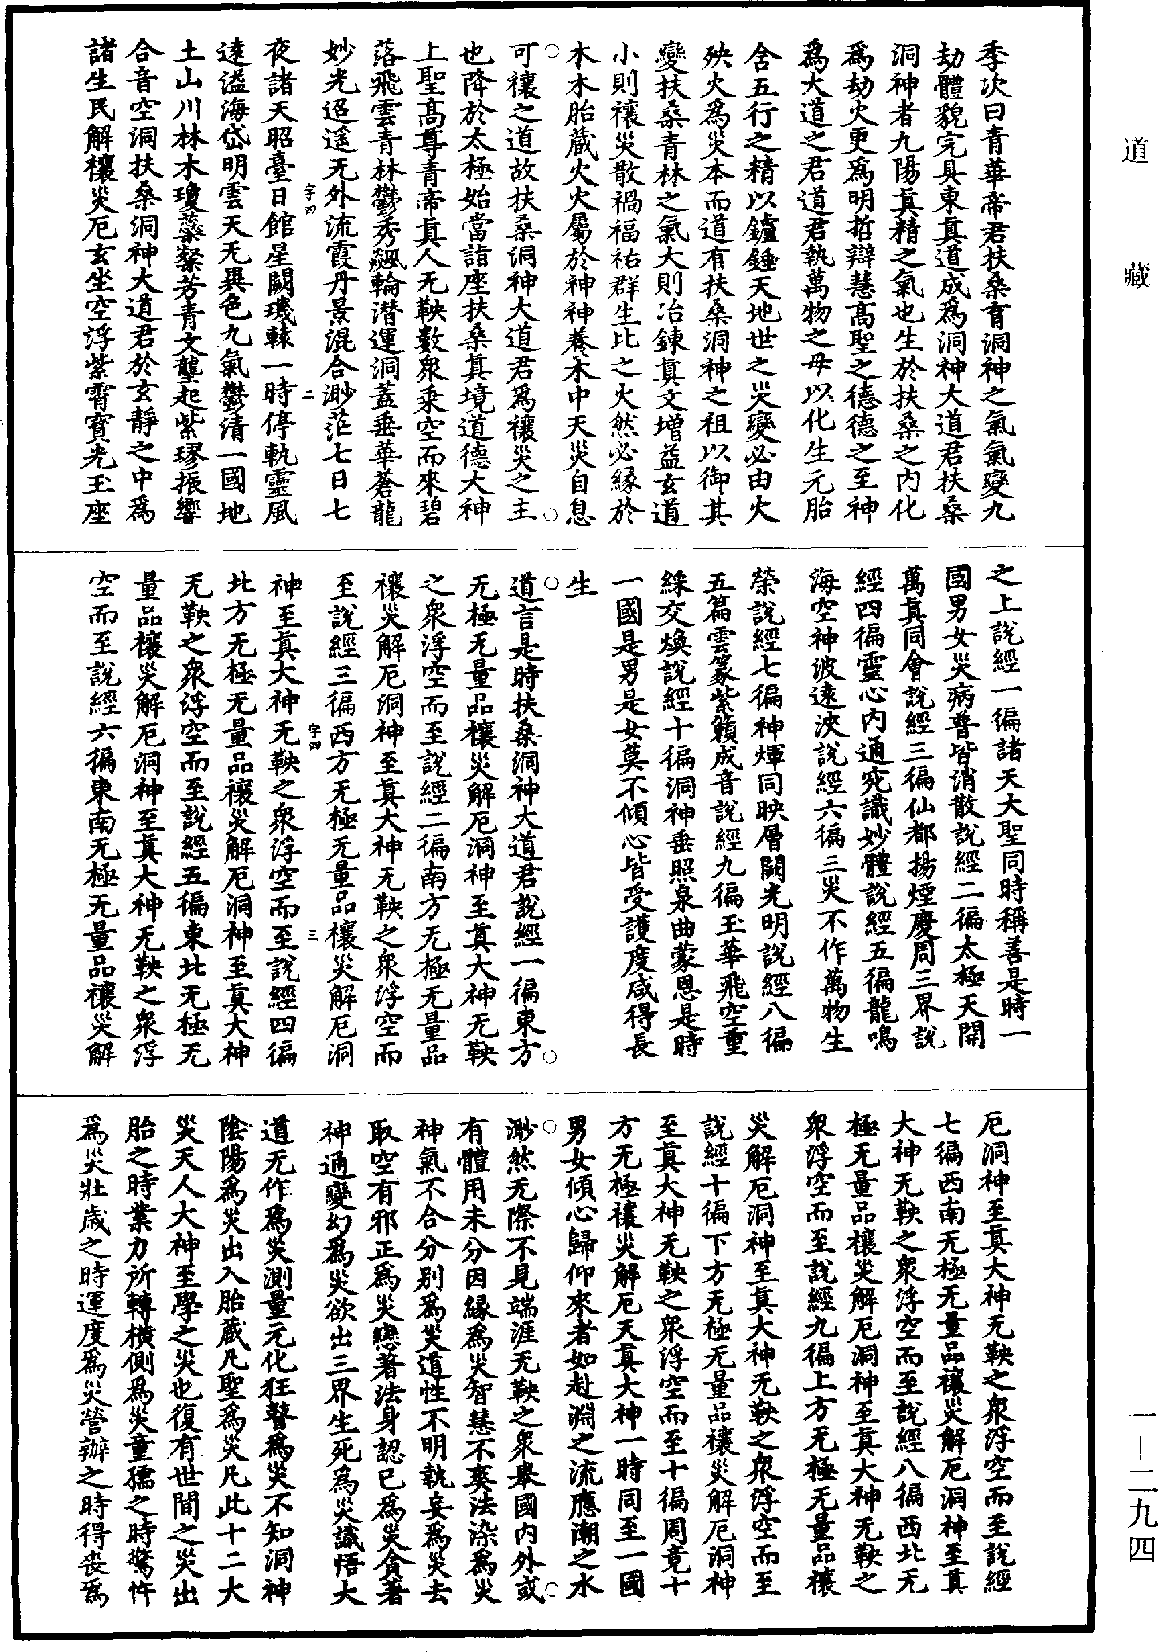 季次曰青華帝君扶桑育洞神之氣氣變九
劫體貌完具東真道成爲洞神大道君扶桑
洞神者九陽真精之氣也生於扶桑之内化
爲劫火更爲明哲辯慧高聖之德德之至神
爲大道之君道君執萬物之母以化生元胎
含五行之精以鑪錘天地世之災變必由火
殃火爲災本而道有扶桑洞神之祖以御其
變扶桑青林之氣大則冶鍊真文增益玄道
小則禳災散禍福祐群生比之火然必縁於
木木胎藏火火屬於神神養木中天災自息
可禳之道故扶桑洞神大道君爲禳災之主
也降於太極始當詣座扶桑真境道德大神
上聖高尊青帝真人无鞅數衆乘空而來碧
落飛雲青林鬱秀飆輪潜運洞蓋垂華蒼龍
妙光迢遥无外流霞丹景混合渺茫七日七
字四 二
夜諸天昭臺日館星闕璣轅一時停軌靈風
逺溢海岱明雲天无異色九氣鬱清一國地
土山川林木瓊蘂縈芳青文壟起紫璆振響
合音空洞扶桑洞神大道君於玄靜之中爲
諸生民解禳災厄玄坐空浮紫霄寶光玉座
之上說經一徧諸天大聖同時稱善是時一
國男女災病普皆消散說經二徧太極天開
萬真同會說經三徧仙都揚煙慶周三界說
經四徧靈心内通究識妙體說經五徧龍鳴
海空神波逺泱說經六徧三災不作萬物生
榮說經七徧神煇同映層闕光明說經八徧
五篇雲篆紫籟成音說經九徧玉華飛空重
綵交煥說經十徧洞神垂照泉曲蒙恩是時
一國是男是女莫不傾心皆受護度咸得長
生
道言是時扶桑洞神大道君說經一徧東方
无極无量品禳災解厄洞神至真大神无鞅
之衆浮空而至說經二徧南方无極无量品
禳災解厄洞神至真大神无鞅之衆浮空而
至說經三徧西方无極无量品禳災解厄洞
字四 三
神至真大神无鞅之衆浮空而至說經四徧
北方无極无量品禳災解厄洞神至真大神
无鞅之衆浮空而至說經五徧東北无極无
量品禳災解厄洞神至真大神无鞅之衆浮
空而至說經六徧東南无極无量品禳災解
厄洞神至真大神无鞅之衆浮空而至說經
七徧西南无極无量品禳災解厄洞神至真
大神无鞅之衆浮空而至說經八徧西北无
極无量品禳災解厄洞神至真大神无鞅之
衆浮空而至說經九徧上方无極无量品禳
災解厄洞神至真大神无鞅之衆浮空而至
說經十徧下方无極无量品禳災解厄洞神
至真大神无鞅之衆浮空而至十徧周竟十
方无極禳災解厄天真大神一時同至一國
男女傾心歸仰來者如赴淵之流應潮之水
渺然无際不見端涯无鞅之衆舉國内外或
有體用未分因緣爲災智慧不爽法染爲災
神氣不合分别爲災道性不明執妄爲災去
取空有邪正爲災戀著法身認已爲災貪著
神通變幻爲災欲出三界生死爲災識悟大
道无作爲災測量元化狂瞽爲災不知洞神
陰陽爲災出入胎藏凡聖爲災凡此十二大
災天人大神至學之災也復有世間之災出
胎之時業力所轉橫側爲災童孺之時驚忤
爲災壯歲之時運度爲災營辦之時得喪爲
道藏
一—二九四